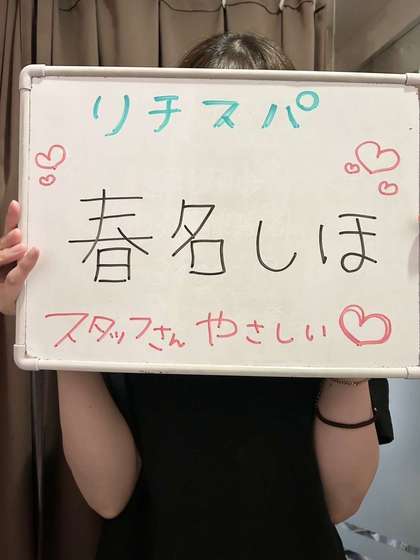 リチスパ
春名しほ
スタッフさん やさしい♡